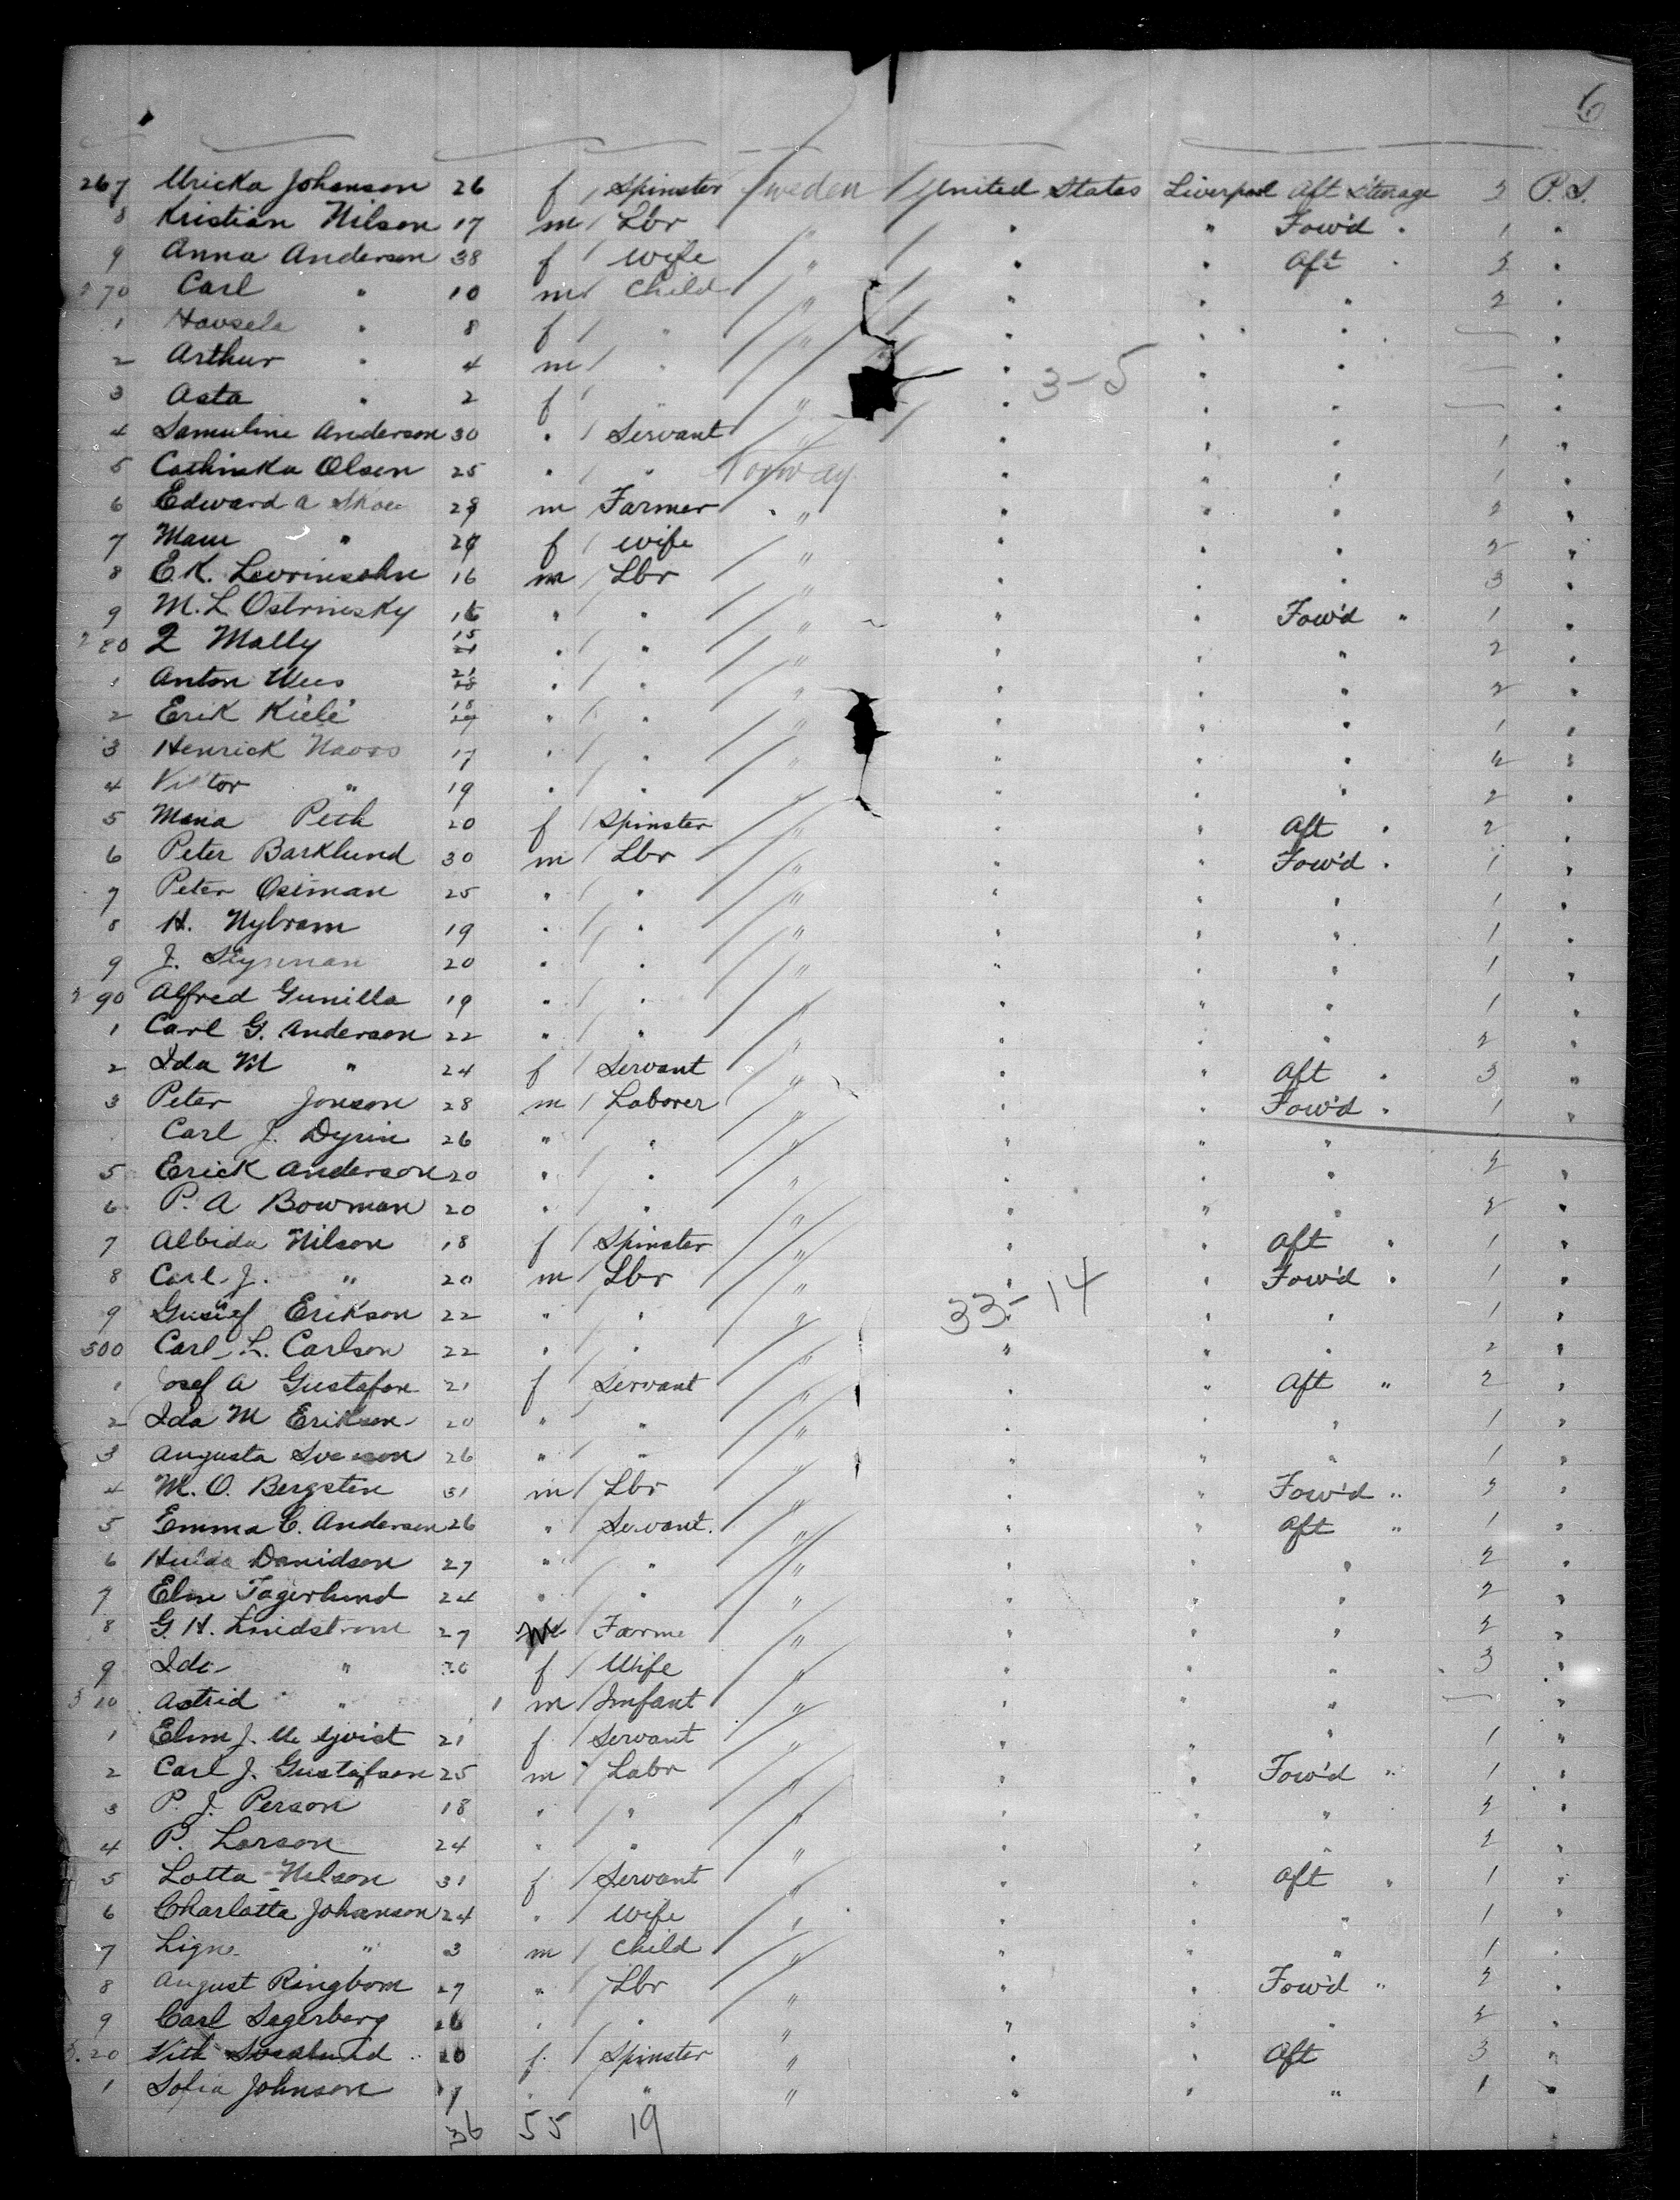 6
267 Uricka Johanson 26 f Spinster Sweden United States Liverpool Aft Steerage 2 P.S.
8 Kristian Nilson 17 m Lbr " " " Fow'd " 1 "
9 Anna Anderson 38 f Wife " " " Aft " 2 "
270 Carl " 10 m Child " " " " 2 "
1 8 f " " " " " — "
2 Arthur " 4 m " " " " " — "
3 Asta " 2 f " " " " " — "
3-5
4 Samuline Anderson 30 " Servant " " " " 1 "
5 Cathinka Olsen 25 " " Norway " " " 1 "
6 Edward A 29 m Farmer " " " " 2 "
7 " f Wife " " " " 2 "
8 E.K. Levrinsohn 16 m Lbr " " " " 3 "
9 M. L Ostrinsky 16 " " " " " Fow'd " 1 "
280 Mally 15 " " " " " " 2 "
1 Anton 21 " " " " " " 2 "
2 Erik Kiele 18 " " " " " " 1 "
3 Henrick 17 " " " " " " "
4 Viktor " 19 " " " " " " 2 "
5 Mana 20 f Spinster " " " Aft " 2 "
6 Peter Barklund 30 m Lbr " " " Fow'd " 1 "
7 Peter Osiman 25 " " " " " " 1 "
8 H. Nybram 19 " " " " " " 1 "
9 J. 20 " " " " " " 1 "
290 Alfred Gunilla 19 " " " " " " 1 "
1 Carl G. Anderson 22 " " " " " " 2 "
2 Ida M " 24 f Servant " " " Aft " 3 "
3 Peter Jonson 28 m Laborer " " " Fow'd " 1 "
Carl J. 26 " " " " " "
5 Erick Anderson 20 " " " " " " 2 "
6 P. A Bowman 20 " " " " " " 2 "
7 Albida Nilson 18 f Spinster " " " Aft " 1 "
8 Carl J. " 20 m Lbr " " " Fow'd " 1 "
33-14
9 Gustef Erikson 22 " " " " " " 1 "
300 Carl L. Carlson 22 " " " " " " 2 "
1 Josef A Gustafon 21 f Servant " " " Aft " 2 "
2 Ida M Erikson 20 " " " " " " 1 "
3 Augusta 26 " " " " " " 1 "
4 M. O. Bergsten 31 m Lbr " " " Fow'd " 2 "
5 Emma C. Anderson 26 " Servant " " " Aft " 1 "
6 Hulda Danidson 27 " " " " " " 2 "
7 Elne Fagerlund 24 " " " " " " 2 "
8 G. H. Lindstrom 27 m Farme " " " " 2 "
9 Ida " f Wife " " " " 3 "
310 Astrid " 1 m Infant " " " " — "
1 J. 21 f Servant " " " " 1 "
2 Carl J. Gustafson 25 m Labr " " " Fow'd " 1 "
3 P. J. Person 18 " " " " " " 2 "
4 P. Larson 24 " " " " " " 2 "
5 Lotta Nelson 31 f Servant " " " Aft " 1 "
6 Charlotta Johanson 24 " Wife " " " " 1 "
7 " 3 m Child " " " " 1 "
8 August Ringbom 27 " Lbr " " " Fow'd " 2 "
9 Carl Sagerberg " " " " " " 2 "
320 20 f Spinster " " " Aft 3 "
1 Sofia Johnson " " " " " " 1 "
36 55 19